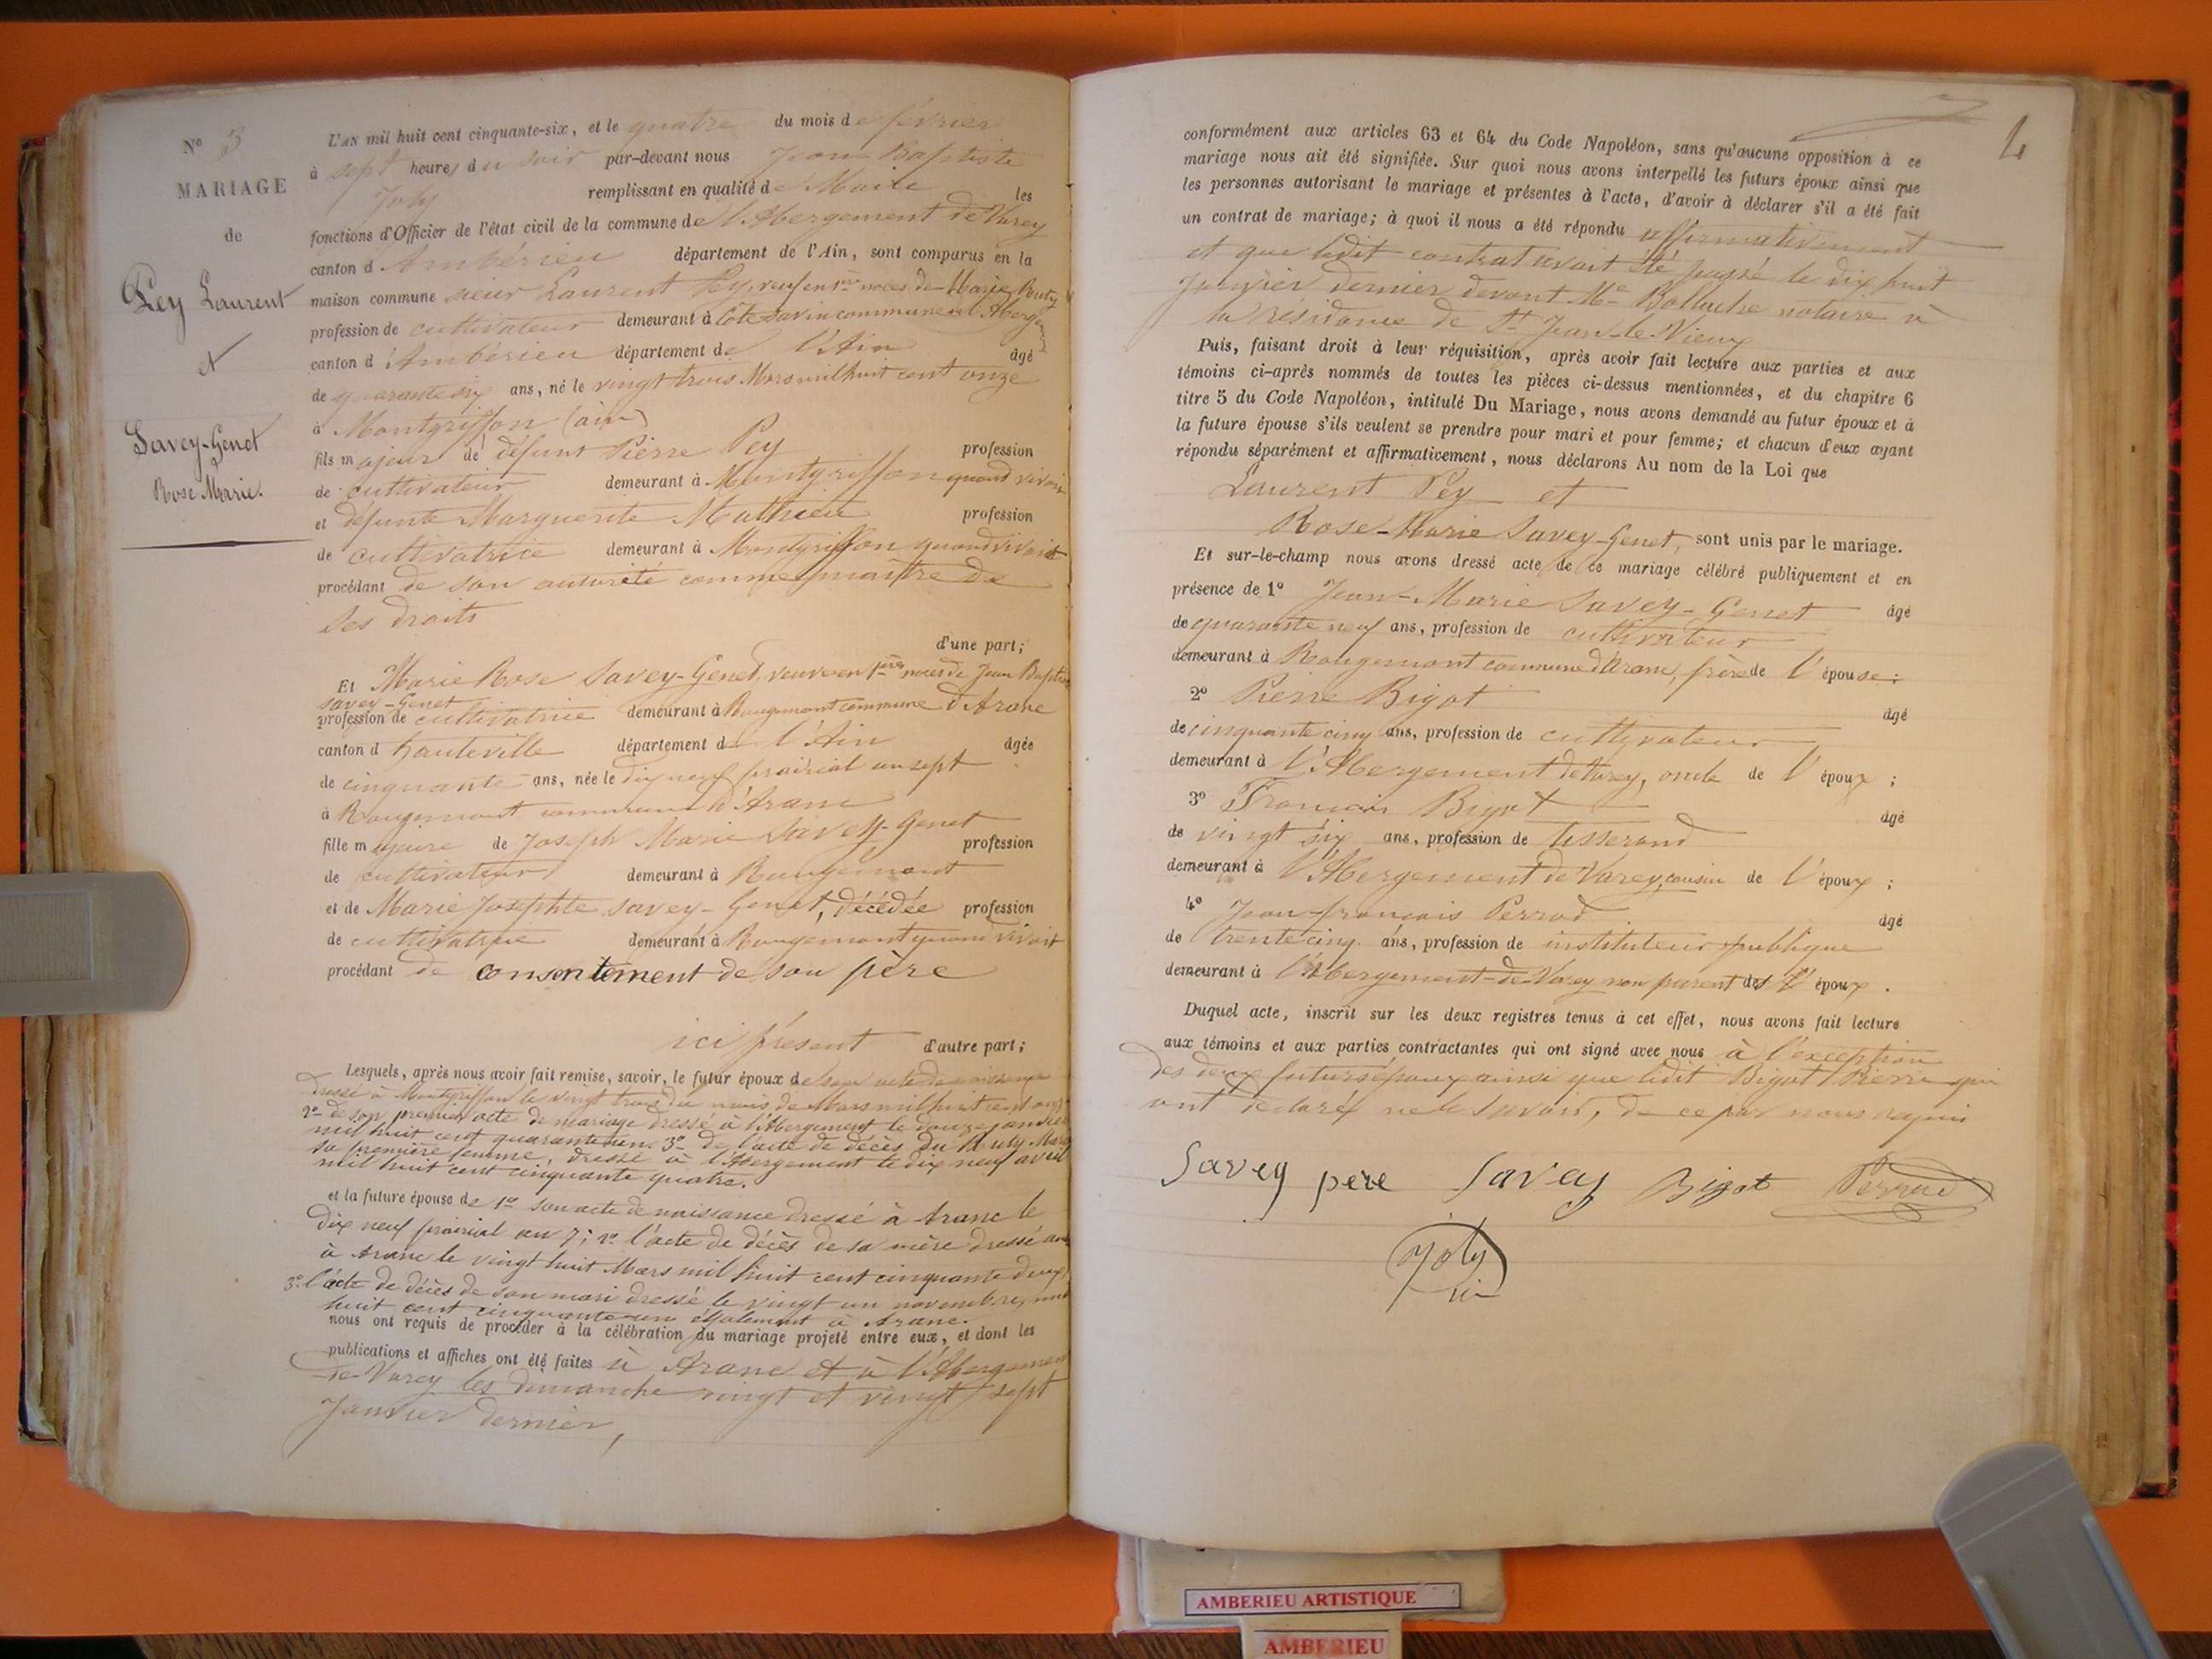 N° 3
MARIAGE
de
Pey Laurent
et
Savey-Genet
Rose Marie.
L'AN mil huit cent cinquante-six, et le quatre du mois de février
à sept heures du soir par-devant nous Jean Baptiste
Joly remplissant en qualité de Maire les
fonctions d'Officier de l'état civil de la commune de l'Abergement de Varey
canton d'Ambérieu département de l'Ain, sont comparus en la
maison commune sieur Laurent Pey, veuf en 1ères noces de Marie
profession de cultivateur demeurant à Côte Savin commune de l'Abergement
canton d'Ambérieu département de l'Ain âgé
de quarante six ans, né le vingt trois Mars mil huit cent onze
à Montgriffon (ain)
fils majeur de défunt Pierre Pey profession
de cultivateur demeurant à Montgriffon quand vivait
et défunte Marguerite Mathieu profession
de cultivatrice demeurant à Montgriffon quand vivait
procédant de son autorité comme maître de
ses droits
d'une part;
Et Marie Rose Savey-Genet, veuve en 1ères noces de Jean Baptiste
Savey-Genet
profession de cultivatrice demeurant à Rougemont commune d'Aranc
canton d hauteville département de l'Ain âgée
de cinquante ans, née le dix neuf prairial an sept
à Rougemont commune d'Aranc
fille majeure de Joseph Marie Savey-Genet profession
de cultivateur demeurant à Rougemont
et de Marie Josephte Savey-Genet, décédée profession
de cultivatrice demeurant à Rougemont quand vivait
procédant de consentement de son père
ici présent d'autre part;
Lesquels, après nous avoir fait remise, savoir, le futur époux de son acte de naissance
dressé à Montgriffon le vingt trois du mois de Mars mil huit cent onze
2° de son premier acte de mariage dressé à l'Abergement le douze janvier
mil huit cent quarante un. 3° de l'acte de décès du
sa première femme, dressé à l'Abergement le dix neuf avril
mil huit cent cinquante quatre.
et la future épouse de 1° son acte de naissance dressé à Aranc le
dix neuf prairial an 7; 2° l'acte de décès de sa mère dressé
à Aranc le vingt huit Mars mil huit cent cinquante deux
3° l'acte de décès de son mari dressé le vingt un novembre, mil
huit cent cinquante un également à Aranc.
nous ont requis de procéder à la célébration du mariage projeté entre eux, et dont les
publications et affiches ont été faites à Aranc et à l'Abergement
de Varey les dimanche vingt et vingt sept
Janvier dernier,
4
conformément aux articles 63 et 64 du Code Napoléon, sans qu'aucune opposition à ce
mariage nous ait été signifiée. Sur quoi nous avons interpellé les futurs époux ainsi que
les personnes autorisant le mariage et présentes à l'acte, d'avoir à déclarer s'il a été fait
un contrat de mariage; à quoi il nous a été répondu affirmativement
et que ledit contrat avait été passé le dix huit
Janvier dernier devant Me notaire à
la résidence de St Jean-le-Vieux
Puis, faisant droit à leur réquisition, après avoir fait lecture aux parties et aux
témoins ci-après nommés de toutes les pièces ci-dessus mentionnées, et du chapitre 6
titre 5 du Code Napoléon, intitulé Du Mariage, nous avons demandé au futur époux et à
la future épouse s'ils veulent se prendre pour mari et pour femme; et chacun d'eux ayant
répondu séparément et affirmativement, nous déclarons Au nom de la Loi que
Laurent Pey et
Rose-Marie Savey-Genet, sont unis par le mariage.
Et sur-le-champ nous avons dressé acte de ce mariage célébré publiquement et en
présence de 1° Jean-Marie Savey-Genet âgé
de quarante neuf ans, profession de cultivateur
demeurant à Rougemont commune d'Aranc, frère de l'épouse;
2° Pierre Bigot âgé
de cinquante cinq ans, profession de cultivateur
demeurant à l'Abergement de Varey, oncle de l'époux;
3° François Bigot âgé
de vingt six ans, profession de tisserand
demeurant à l'Abergement de Varey, cousin de l'époux;
4° Jean-françois Perrod âgé
de trente cinq ans, profession de instituteur publique
demeurant à l'Abergement-de-Varey non parent des époux.
Duquel acte, inscrit sur les deux registres tenus à cet effet, nous avons fait lecture
aux témoins et aux parties contractantes qui ont signé avec nous à l'exception
des deux futurs époux ainsi que ledit Bigot Pierre qui
ont déclaré ne le savoir, de ce par nous requis
Savey père Savey Bigot
Joly
AMBERIEU ARTISTIQUE
AMBERIEU